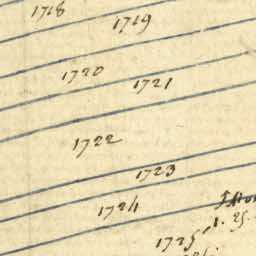 1718
1719
1720
1721
1722
1723
1724
1725